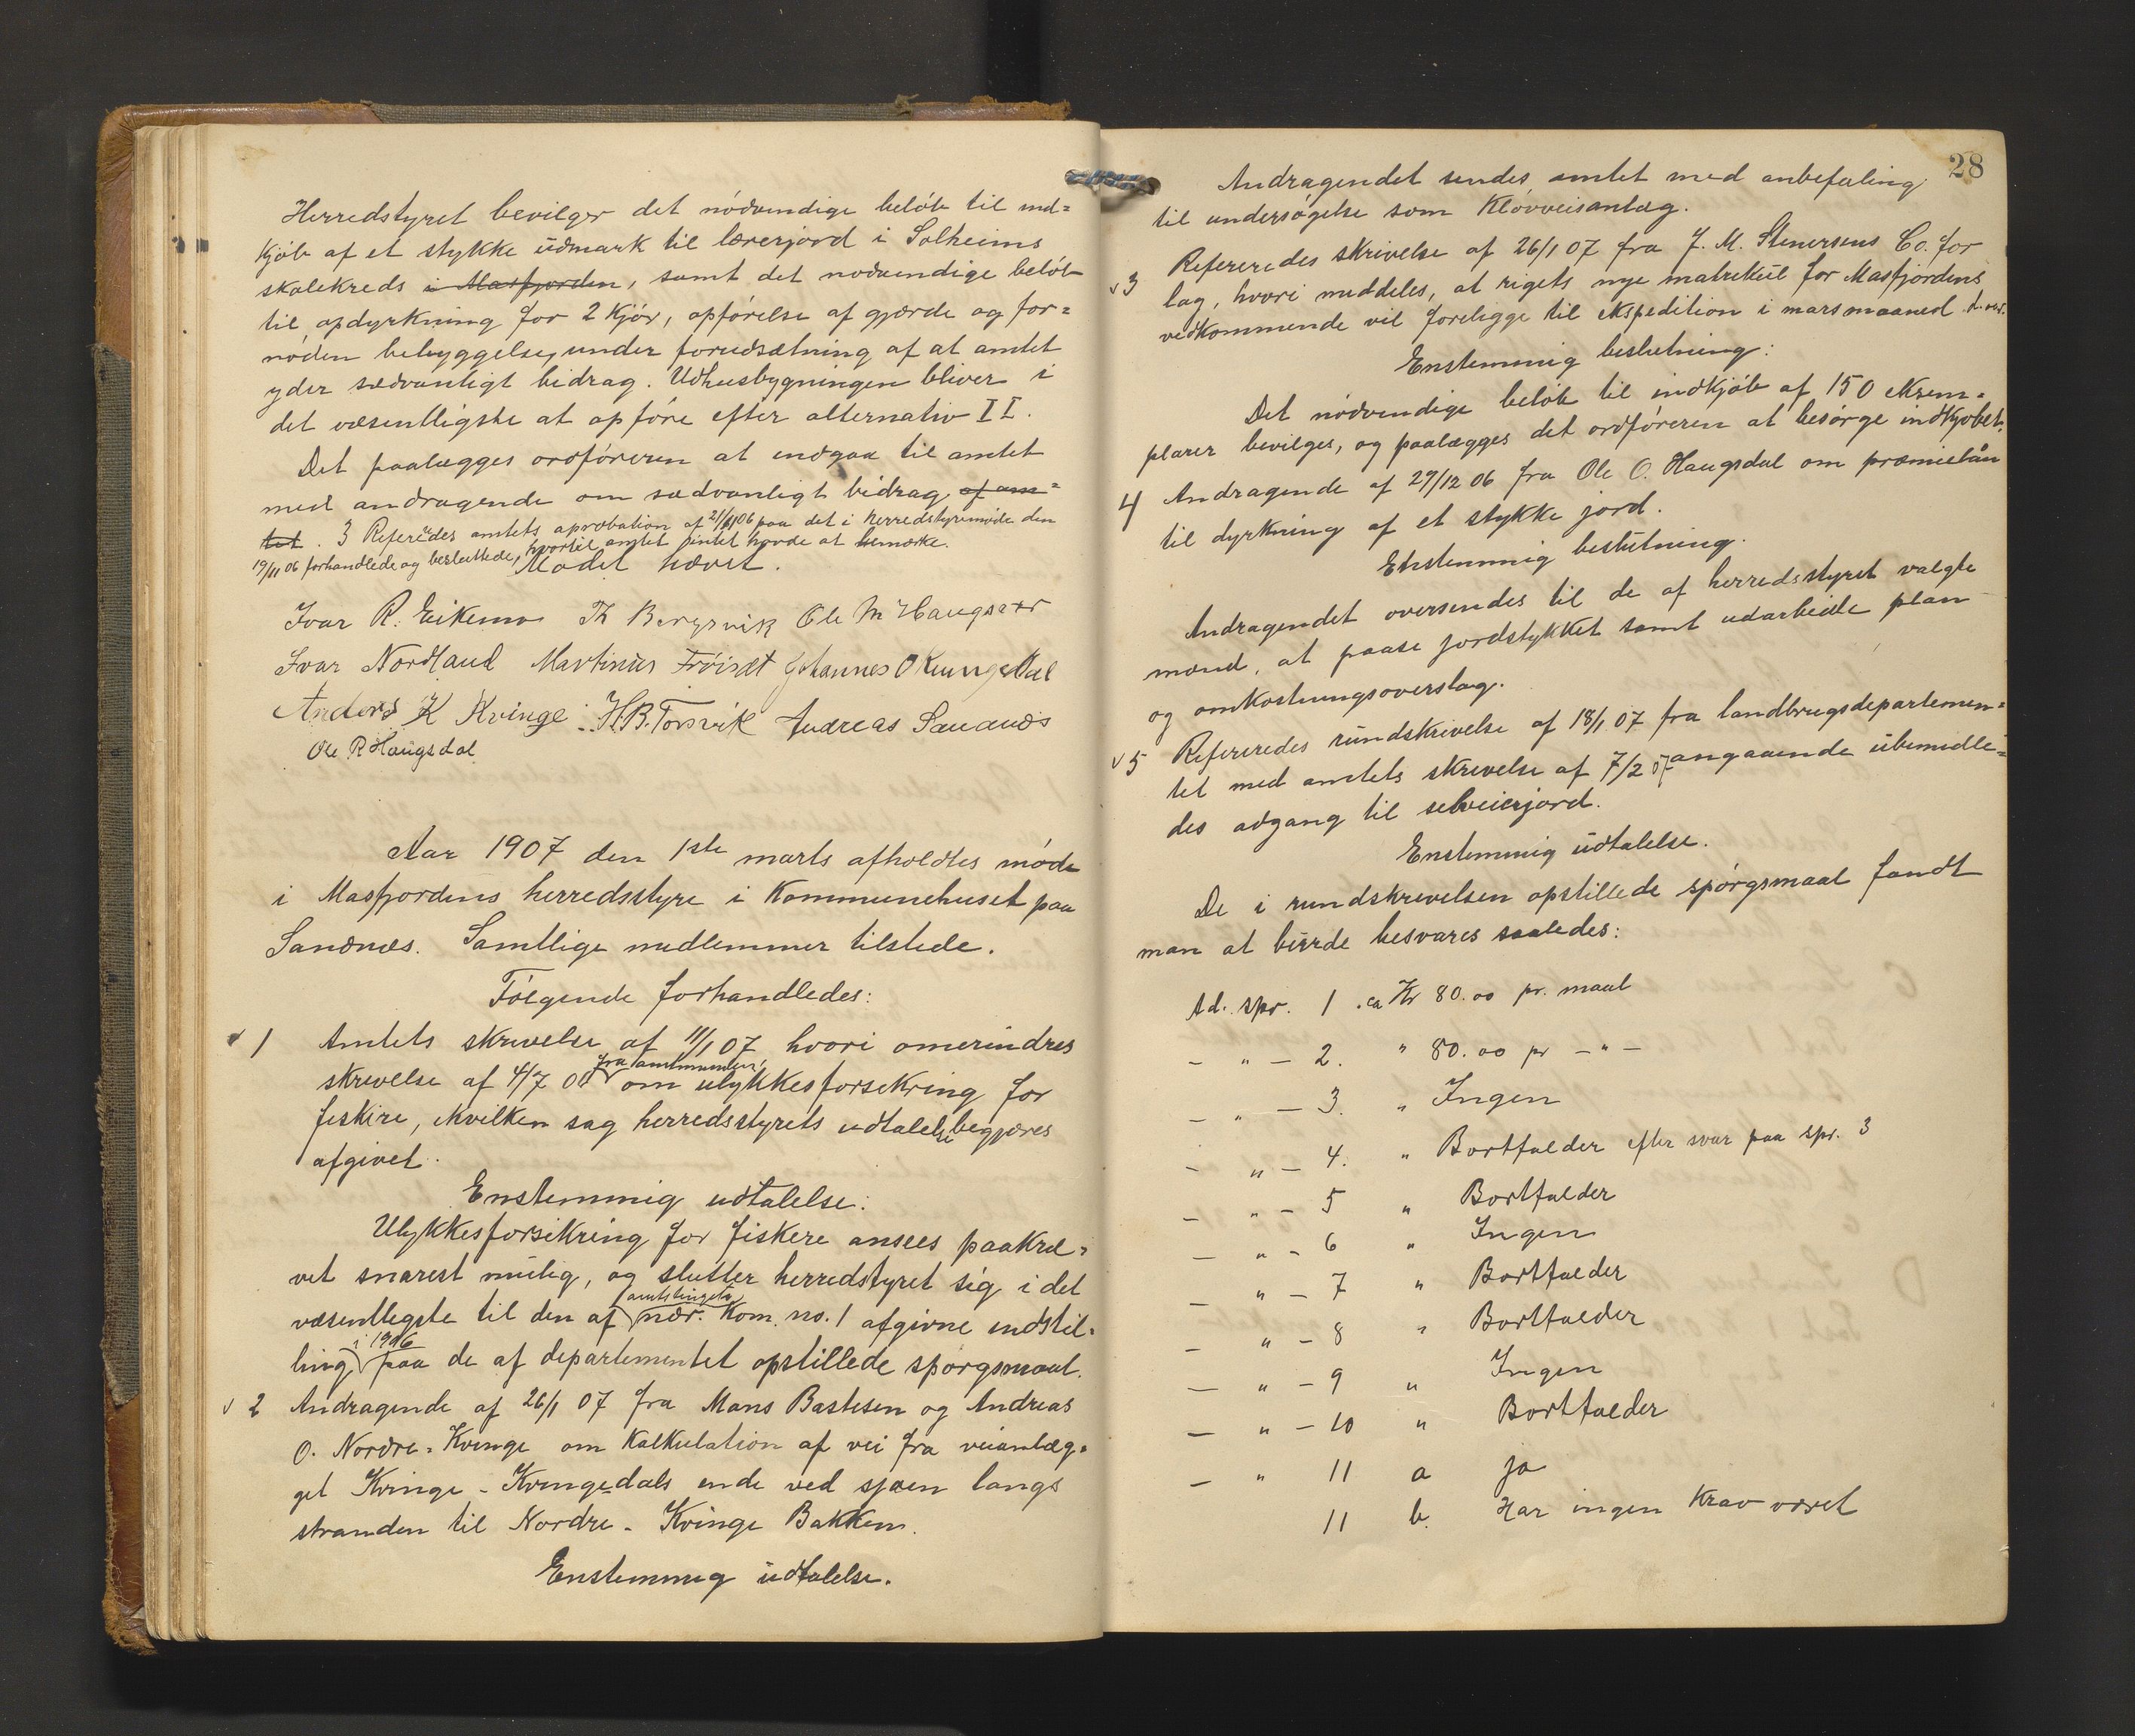 Herredstyret bevilger det nödvendige belöb til ind=
kjöb af et stykke udmark til lærerjord i Solheims
skolekreds i Masfjorden, samt det nödvendige belöb
til opdyrkning for 2 kjör, opförelse af gjærde og for=
nöden bebyggelse, under forudsætning af at amtet
yder sædvanligt bidrag. Udhusbygningen bliver i
det væsentligste at opföre efter alternativ II.
Det paalægges ordföreren at indgaa til amtet
med andragende om sædvanligt bidrag af am=
tet. 3 Referedes amtets aprobation af 21/11 06 paa det i herredstyremöde den
19/11 06 forhandlede og besluttede, hvortil amtet intet havde at bemærke.
Mödet hævet.
Ivar R. Eikemo Th Bergsvik Ole M Haugsvær
Ivar Nordland Martinus Fröiset Johannes O Kvingedal
Anders K Kvinge H.B. Torsvik Andreas Sandnæs
Ole R Haugsdal
Aar 1907 den 1ste marts afholdtes möde
i Masfjordens herredsstyre i Kommunehuset paa
Sandnæs. Samtlige medlemmer tilstede.
Fölgende forhandledes:
1 Amtets skrivelse af 11/1 07 hvori omerindres
skrivelse af 4/7 06 fra amtmanden om ulykkesforsekring for
feskire, i hvilken sag herredsstyrets udtalelse begjæres
afgivet.
Enstemmig udtalelse:
Ulykkesforsikring for fiskere ansees paakræ=
vet snarest mulig, og slutter herredstyret sig i det
væsentlegste til den af amtstingets nær. Kom. no. 1 afgivne indstil=
ling i 1906 paa de af departementet opstillede spörgsmaal.
2 Andragende af 26/1 07 fra Mons Bastesen og Andreas
O. Nordre-Kvinge om kalkulation af vei fra veianlæg=
get Kvinge-Kvingedals ende ved sjöen langs
stranden til Nordre-Kvinge Bakken.
Enstemmig udtalelse.
28
Andragendet sendes amtet med anbefaling
til undersögelse som Klövveisanlæg.
3 Refereredes skrivelse af 26/1 07 fra J. M. Stenersens Co. for
lag, hvori meddeles, at rigets nye matrikul for Masfjordens
vedkommende vil foreligge til ekspedition i marsmaaned
Enstemmig beslutning:
Det nödvendige belöb til indkjöb af 150 eksem=
plarer bevilges, og paalægges det ordföreren at besörge indkjöbet.
4 Andragende af 27/12 06 fra Ole O. Haugsdal om præmielån
til dyrkning af et stykke jord.
Enstemmig beslutning.
Andragendet oversendes til de af herredsstyret valgte
mænd, at paase jordstykket samt udarbeide plan
og omkostningsoverslag.
5 Refereredes rundskrivelse af 18/1 07 fra landbrugsdepartemen=
tet med amtets skrivelse af 7/2 07 angaaende ubemidle=
des adgang til selveierjord.
Enstemmig udtalelse.
De i rundskrivelsen opstillede spörgsmaal fandt
man at burde besvares saaledes:
Ad. spr. 1 . ca Kr 80.00 pr. maal
- " - 2. " 80.00 pr - " -
- " - 3. " Ingen
- " - 4. " Bortfalder efter svar paa spr. 3
- " - 5 " Bortfalder
- " - 6 " Ingen
- " - 7 " Bortfalder
- " - 8 " Bortfalder
- " - 9 " Ingen
- " - 10 " Bortfalder
- " 11 a ja
11 b. Har ingen Krav været